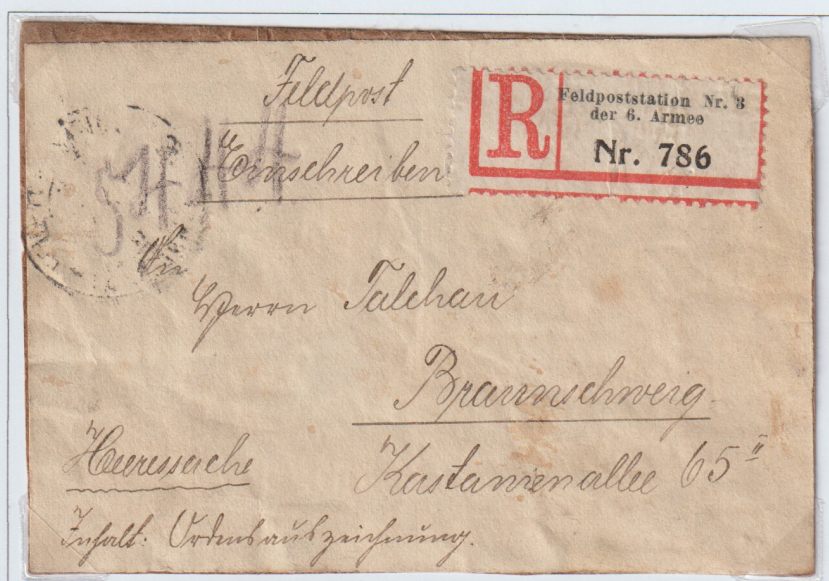 Feldpost
Einschreiben
R
Feldpoststation Nr. 3
der 6. Armee
Nr. 786
An
Herrn Talchau
Braunschweig.
Heeressache
Kastanienallee 65 II
Inhalt: Ordensauszeichnung.